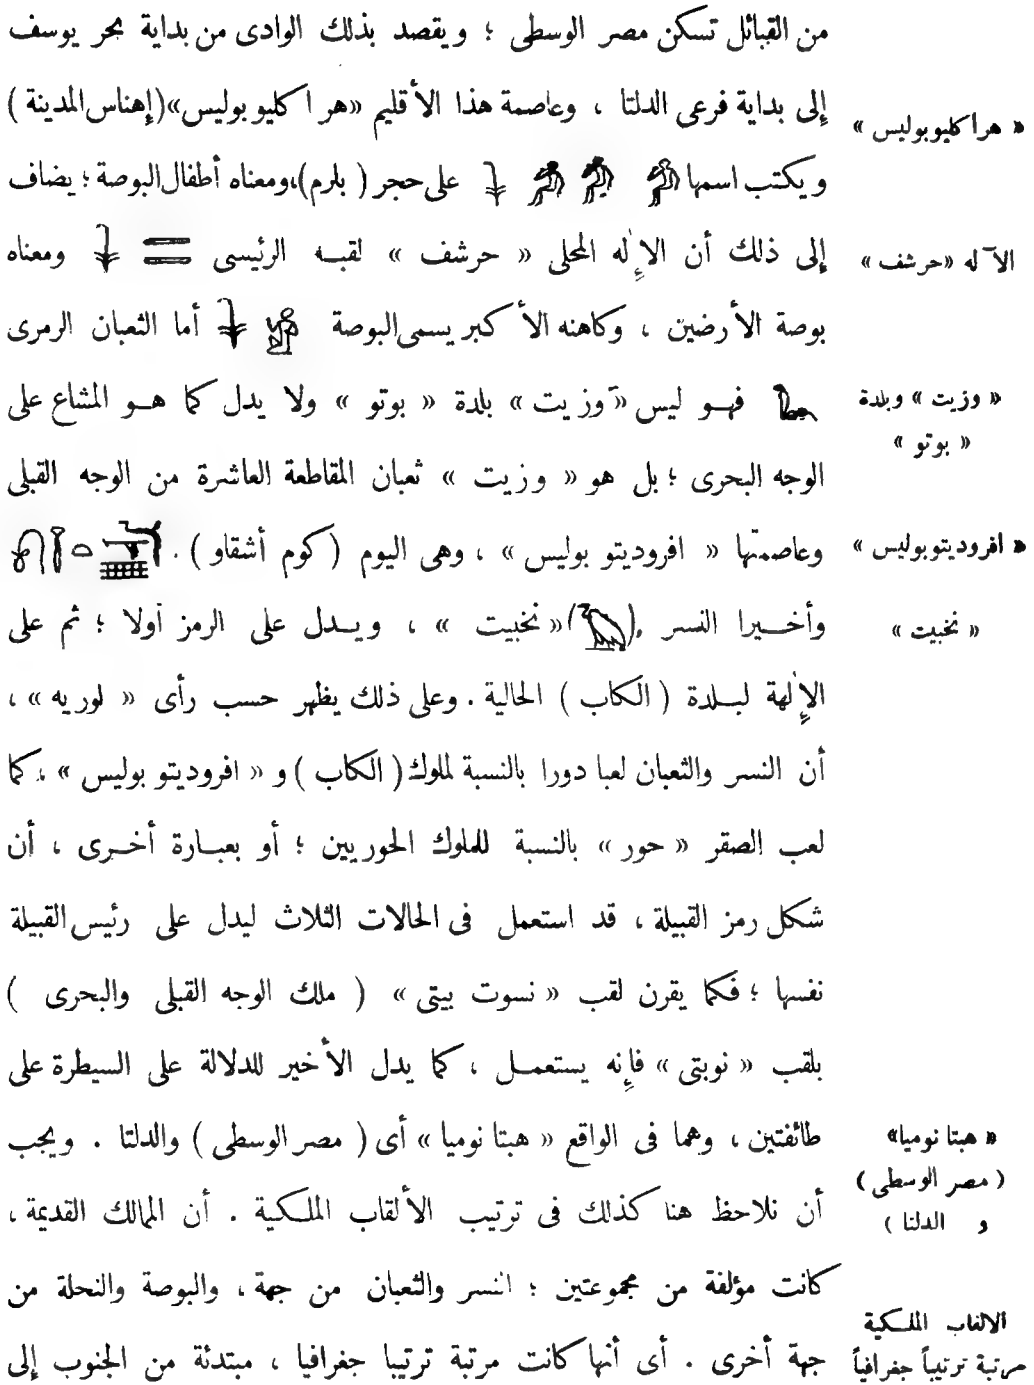 من القبائل تسكن مصر الوسطى ؛ ويقصد بذلك الوادى من بداية بحر يوسف
إلى بداية فرعى الدلتا ، وعاصمة هذا الأقليم «هراكليوبوليس»(إهناس المدينة )
« هراكليوبوليس »
ويكتب اسمها على حجر ( بلرم)،ومعناه أطفال البوصة ؛ يضاف
إلى ذلك أن الإله المحلى « حرشف » لقبه الرئيسى ومعناه
الآله «حرشف »
بوصة الأرضين ، وكاهنه الأكبر يسمى البوصة أما الثعبان الرمرى
فهو ليس «وزيت» بلدة « بوتو » ولا يدل كما هو المشاع على
« وزيت » وبلدة
« بوتو »
الوجه البحرى ؛ بل هو « وزيت » ثعبان المقاطعة العاشرة من الوجه القبلى
وعاصمتها « افروديتو بوليس » ، وهى اليوم ( كوم أشقاو ) .
« افروديتوبوليس »
وأخيرا النسر ( )« نخبيت » ، ويدل على الرمز أولا ؛ ثم على
« نخبيت »
الإلهة لبلدة ( الكاب ) الحالية . وعلى ذلك يظهر حسب رأى « لوريه » ،
أن النسر والثعبان لعبا دورا بالنسبة لملوك ( الكاب ) و « افروديتو بوليس » ، كما
لعب الصقر « حور » بالنسبة للملوك الحوريين ؛ أو بعبارة أخرى ، أن
شكل رمز القبيلة ، قد استعمل فى الحالات الثلاث ليدل على رئيس القبيلة
نفسها ؛ فكما يقرن لقب « نسوت بيتى » ( ملك الوجه القبلى والبحرى )
بلقب « نوبتى » فإنه يستعمل ، كما يدل الأخير للدلالة على السيطرة على
طائفتين ، وهما فى الواقع « هبتا نوميا » أى ( مصر الوسطى ) والدلتا . ويجب
« هبتا نوميا»
( مصر الوسطى )
و الدلتا )
أن نلاحظ هنا كذلك فى ترتيب الألقاب الملكية . أن الممالك القديمة ،
كانت مؤلفة من مجموعتين ؛ النسر والثعبان من جهة ، والبوصة والنحلة من
الالقاب الملكية
مرتبة ترتيباً جغرافياً
جهة أخرى . أى أنها كانت مرتبة ترتيبا جغرافيا ، مبتدئة من الجنوب إلى